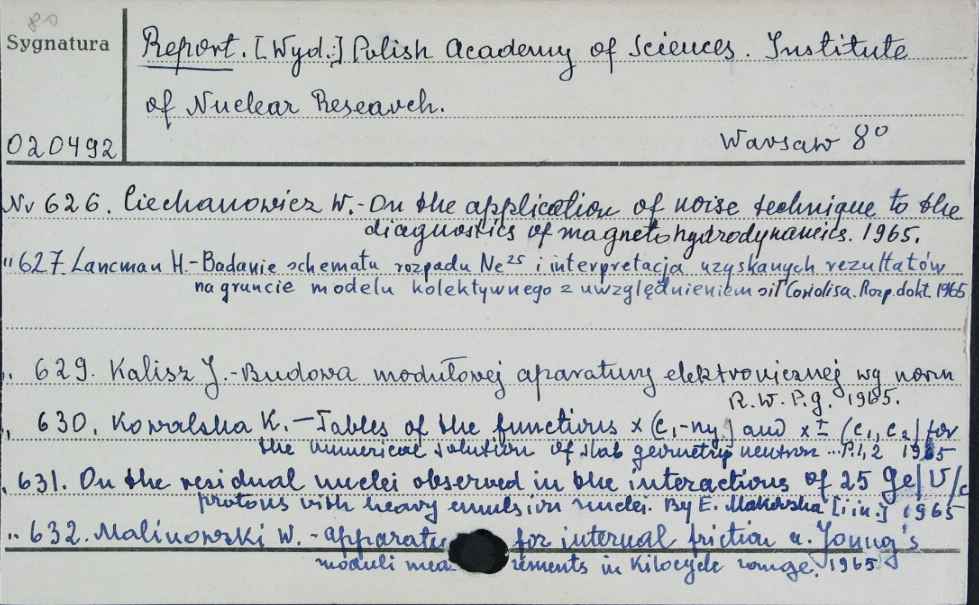 80
Sygnatura
Report. [Wyd.:] Polish Academy of Sciences. Institute
of Nuclear Research.
020492
Warsaw 8°
Nr 626. Ciechanowicz W.-On the application of noise technique to the
diagnostics of magnetohydrodynamics. 1965.
" 627 Lancman H.-Badanie schematu rozpadu Ne²⁵ i interpretacja uzyskanych rezultatów
na gruncie modelu kolektywnego z uwzględnieniem sił Coriolisa. Rozp. dokt. 1965
" 629. Kalisz J.-Budowa modułowej aparatury elektronicznej wg norm
R.W.P.g. 1965.
" 630. Kowalska K.-Tables of the functions x (c₁-ny.) and x± (c₁, c₂) for
the numerical solution of slab geometry neutron ... P.1,2 1965
" 631. On the residual nuclei observed in the interactions of 25 Ge/V/c
protons with heavy emulsion nuclei. By E. Makowska [i in.] 1965
" 632. Malinowski W.-apparatu for internal friction a. Joung's
moduli mea rements in Kilocycle range. 1965